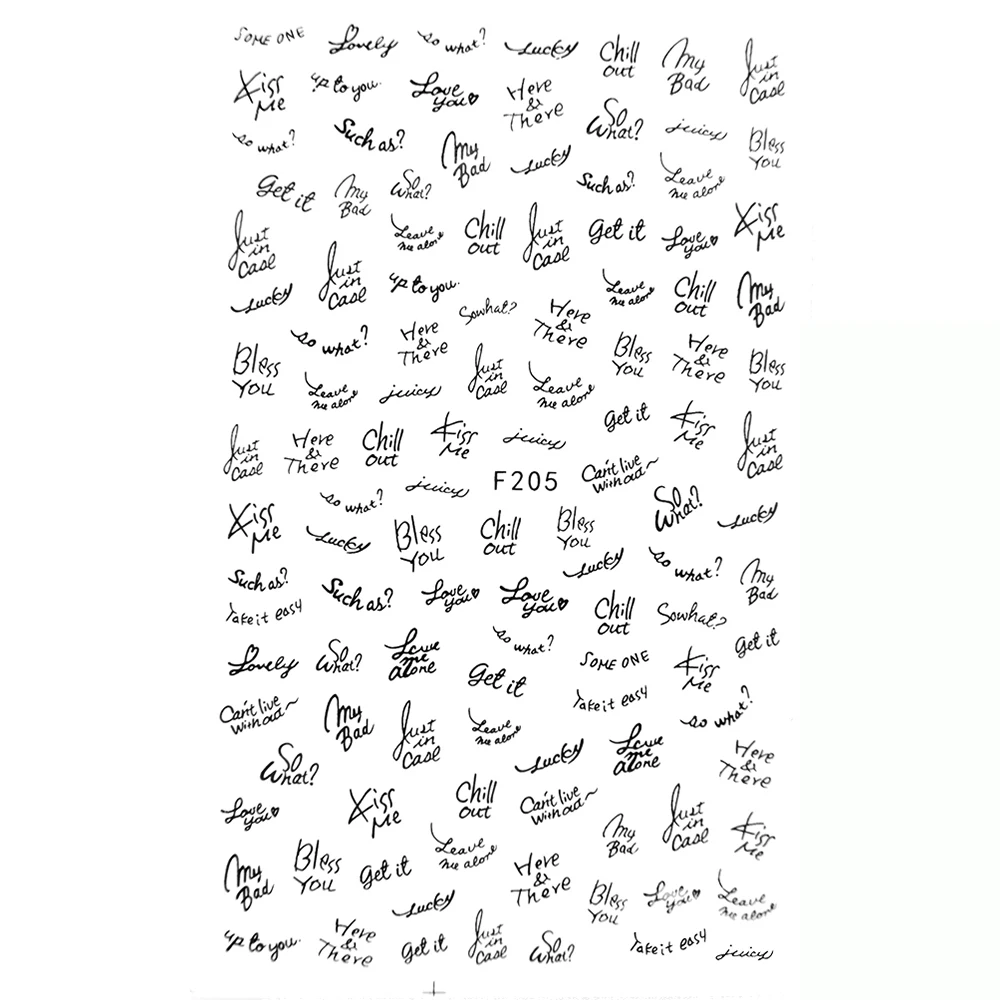 SOME ONE
Lovely
so what?
Lucky
Chill
out
My
Bad
Just
in
Case
Kiss
Me
up to you.
Love
you
Here
&
There
So
What?
juicy
Bless
You
so what?
Such as?
My
Bad
Lucky
Such as?
Leave
me alone
Get it
My
Bad
So
What?
Just
in
Case
Leave
me alone
Chill
out
Just
in
Case
Get it
Love
you
Kiss
Me
Lucky
Just
in
Case
up to you.
Sowhat?
Here
&
There
Leave
me alone
Chill
out
My
Bad
so what?
Here
&
There
Bless
You
Leave
me alone
juicy
Just
in
Case
Leave
me alone
Bless
You
Here
&
There
Bless
You
Get it
Kiss
Me
Just
in
Case
Here
&
There
Chill
out
Kiss
Me
juicy
Just
in
Case
juicy
F205
Can't live
without~
so what?
So
What?
Lucky
Kiss
Me
Lucky
Bless
You
Chill
out
Bless
You
Lucky
so what?
My
Bad
Such as?
Take it easy
Such as?
Love
you
Love
you
Chill
out
Sowhat?
Get it
Lovely
So
What?
Leave
me
alone
so what?
Get it
SOME ONE
Kiss
Me
Take it easy
so what?
Can't live
without~
My
Bad
Just
in
Case
Leave
me alone
Lucky
Leave
me
alone
Here
&
There
So
What?
Love
you
Kiss
Me
Chill
out
Can't live
without~
My
Bad
Just
in
Case
Kiss
Me
My
Bad
Bless
You
Get it
Leave
me alone
Here
&
There
Bless
You
Love
you
Leave
me alone
Lucky
up to you.
Here
&
There
Get it
Just
in
Case
So
What?
Take it easy
juicy